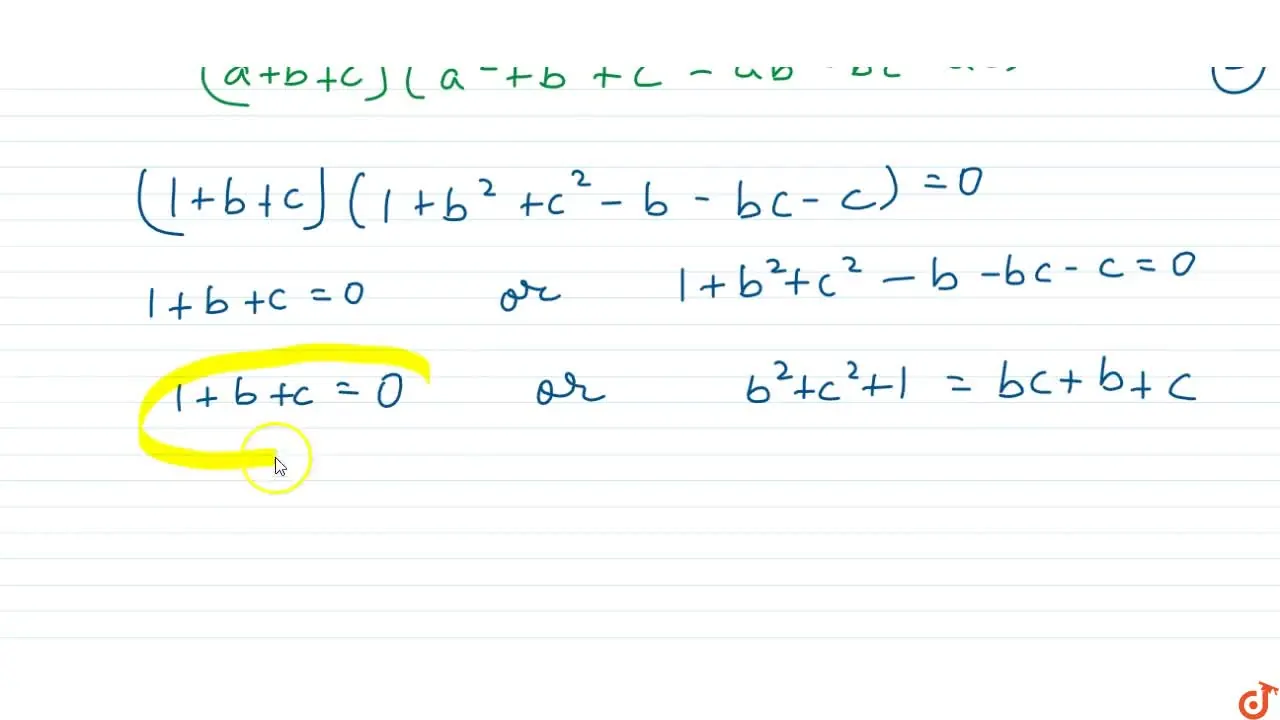 (a+b+c)(a²+b²+c²-ab-bc
(1+b+c)(1+b²+c²-b-bc-c)=0
1+b+c=0 or 1+b²+c²-b-bc-c=0
1+b+c=0 or b²+c²+1=bc+b+c